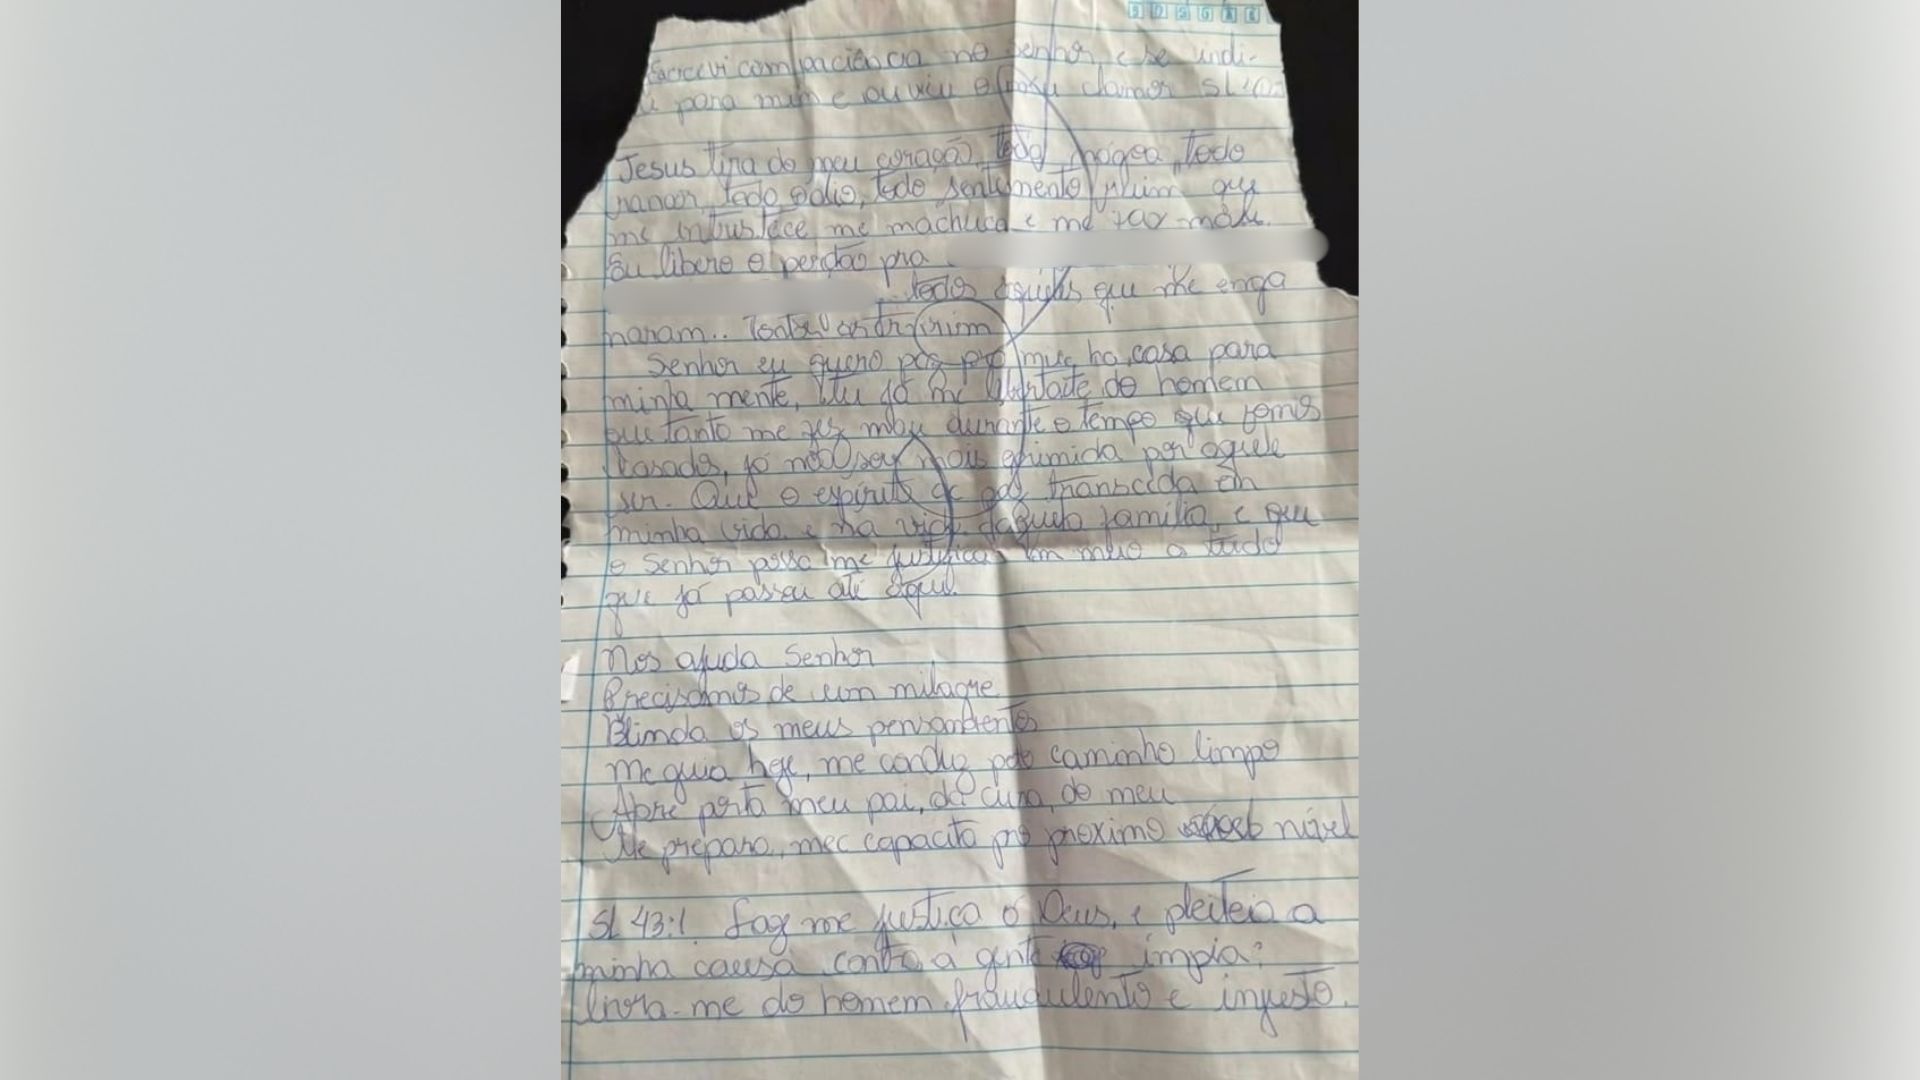 com paciência no Senhor, e se indi-
para mim e ouviu o meu clamor SL 40
Jesus tira do meu coração, toda mágoa, todo
rancor, todo odio, todo sentimento ruim que
me intristece me machuca e me faz mau.
Eu libero o perdão pra
todos aqueles que me enga
naram..
Senhor eu quero paz pra minha casa para
minha mente, tu já me libertaste do homem
que tanto me fez mau durante o tempo que fomos
casados, já não sou mais oprimida por aquele
ser. Que o espirito de paz transceda em
minha vida e na vida daquela família, e que
o Senhor possa me justificar em meio a tudo
que já passei até aqui.
Nos ajuda Senhor
Precisamos de um milagre
Blinda os meus pensamentos
Me guia hoje, me conduz pelo caminho limpo
Abre porta meu pai, da cura, do meu
Me prepara, mec capacita pro proximo nível
SL 43:1 Faz me justiça ó Deus, e pleiteia a
minha causa contra a gente ímpia;
livra-me do homem fraudulento e injusto.